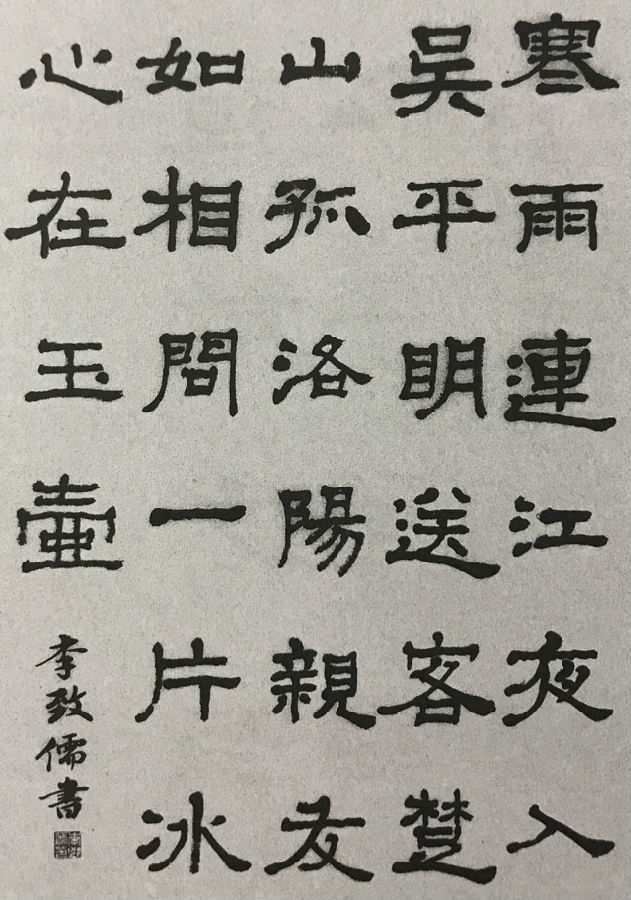 寒雨連江夜入
吳平明送客楚
山孤洛陽親友
如相問一片冰
心在玉壺
李致儒書